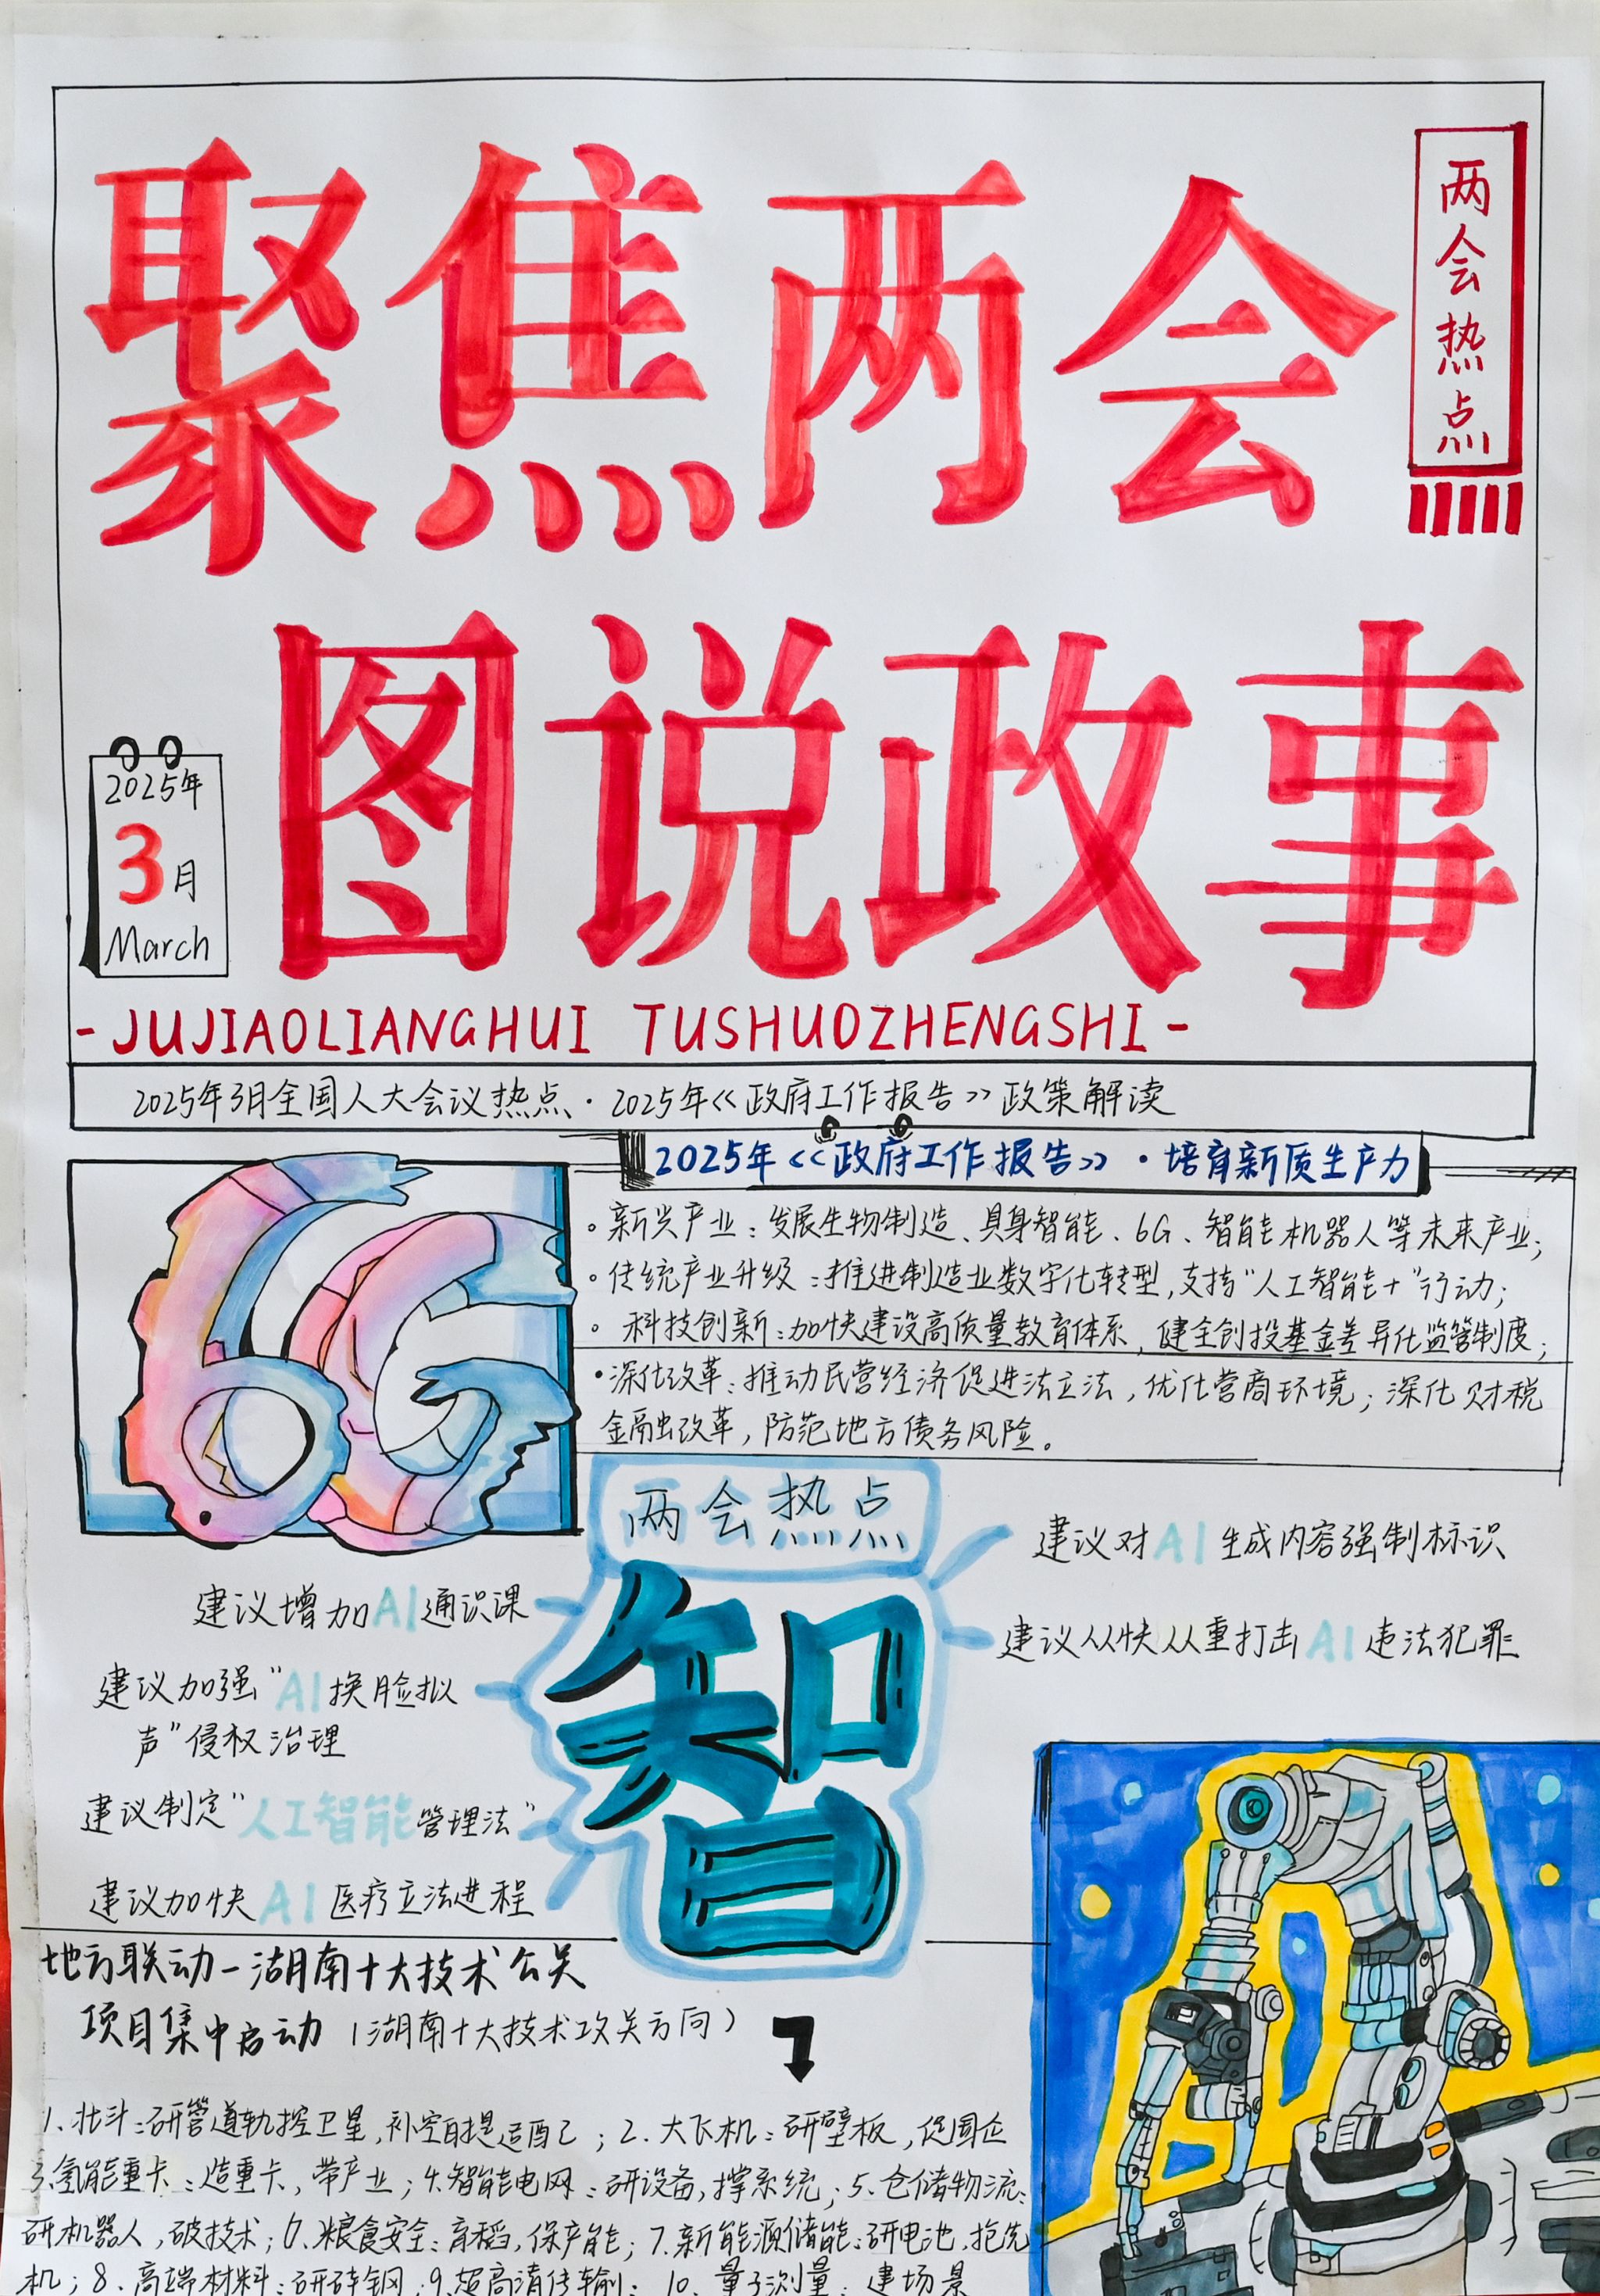 聚焦两会
两会热点
图说政事
2025年
3月
March
-JUJIAOLIANGHUI TUSHUOZHENGSHI-
2025年3月全国人大会议热点·2025年<<政府工作报告>>政策解读
2025年<<政府工作报告>>·培育新质生产力
。新兴产业:发展生物制造、具身智能、6G、智能机器人等未来产业;
。传统产业升级:推进制造业数字化转型,支持“人工智能+”行动;
。科技创新:加快建设高质量教育体系,健全创投基金差异化监管制度;
·深化改革:推动民营经济促进法立法,优化营商环境;深化财税
金融改革,防范地方债务风险。
6G
两会热点
智
建议对AI生成内容强制标识
建议从快从重打击AI违法犯罪
建议增加AI通识课
建议加强“AI换脸拟
声”侵权治理
建议制定“人工智能管理法”
建议加快AI医疗立法进程
地方联动-湖南十大技术公关
项目集中启动(湖南十大技术攻关方向)
1、北斗:研管道轨控卫星,补空自提适配;2.大飞机:研壁板,促国企
3.氢能重卡:造重卡,带产业;4.智能电网:研设备,撑系统;5.仓储物流:
研机器人,破技术;6.粮食安全:育稻,保产能;7.新能源储能:研电池,抢先
机;8.高端材料:研碎钢;9.超高清传输:10.量子测量:建场景